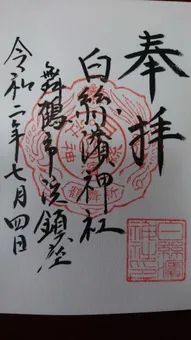 奉拝
白絲濱神社
舞鶴市浜鎮座
令和二年七月四日